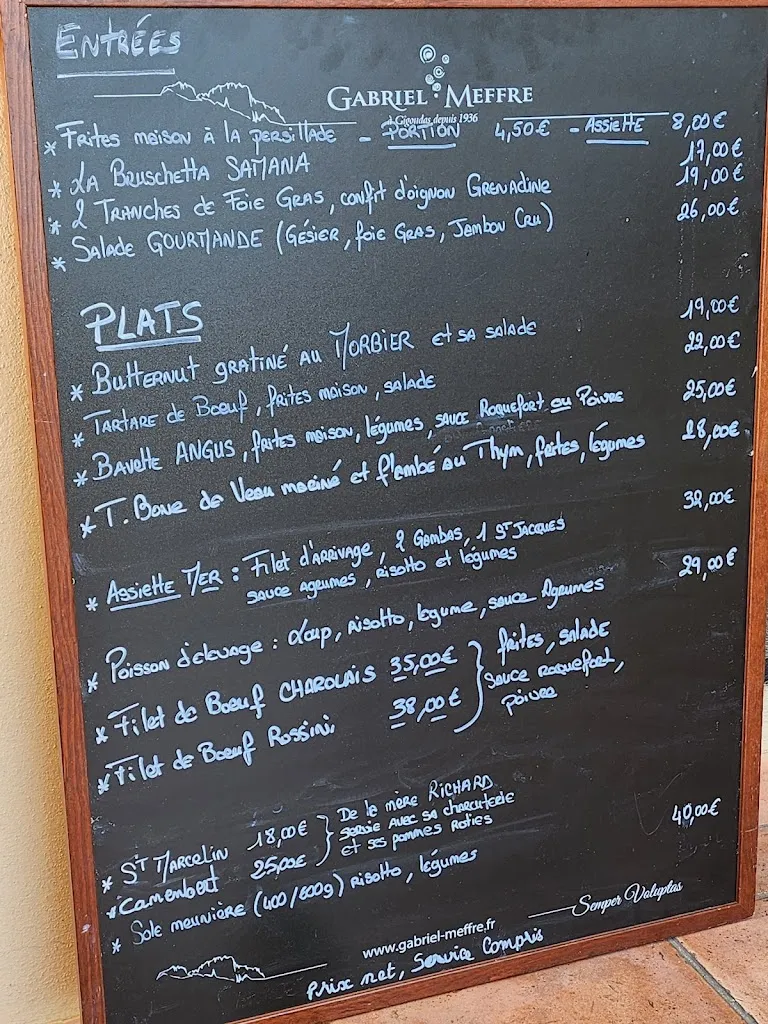 ENTRÉES
GABRIEL MEFFRE
à Gigondas depuis 1936
* Frites maison à la persillade - PORTION 4,50€ - ASSIETTE 8,00€
* LA BRUSCHETTA SAMANA 17,00€
* 2 TRANCHES de Foie GRAS, confit d'oignon GRENADINE 19,00€
* SALADE GOURMANDE (GÉSIER, foie GRAS, JAMBON CRU) 26,00€
PLATS
* Butternut gratiné au MORBIER et sa salade 19,00€
* TARTARE de Boeuf, frites maison, salade 22,00€
* Bavette ANGUS, frites maison, légumes, sauce Roquefort ou Poivre 25,00€
* T. Bone de Veau mariné et flambé au Thym, frites, légumes 28,00€
* Assiette MER : Filet d'arrivage, 2 Gambas, 1 ST JACQUES 32,00€
sauce agrumes, risotto et légumes
* Poisson d'élevage : Loup, risotto, légume, sauce Agrumes 29,00€
* Filet de Boeuf CHAROLAIS 35,00€ } frites, SALADE
* Filet de Boeuf Rossini 38,00€ sauce roquefort,
poivre
* ST MARCELIN 18,00€ } De la mère RICHARD
* Camembert 25,00€ servie avec sa charcuterie
et ses pommes roties
* Sole meunière (400/600g) risotto, légumes 40,00€
Semper Voluptas
www.gabriel-meffre.fr
Prix net, Service Compris